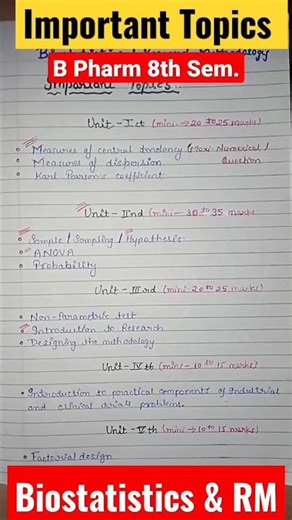 Important Topics
Biostatistics & Research Methodology
B Pharm 8th Sem.
Important Topics:
Unit - Ist (mini → 20 to 25 marks)
• Measures of central tendency (Maxi Numerical /
• Measures of dispersion Question
• Karl Pearson's coefficient
Unit - IInd (mini - 30 to 35 marks
• Sample / Sampling / Hypothesis
• ANOVA
• Probability
Unit - IIIrd (mini 20 to 25 marks)
• Non-Parametric test
• Introduction to Research
• Designing the methodology
Unit - IVth (mini - 10 to 15 marks)
• Introduction to practical components of Industrial
and clinical trials problems.
Unit - Vth (mini → 10 to 15 marks)
• Factorial design
Biostatistics & RM